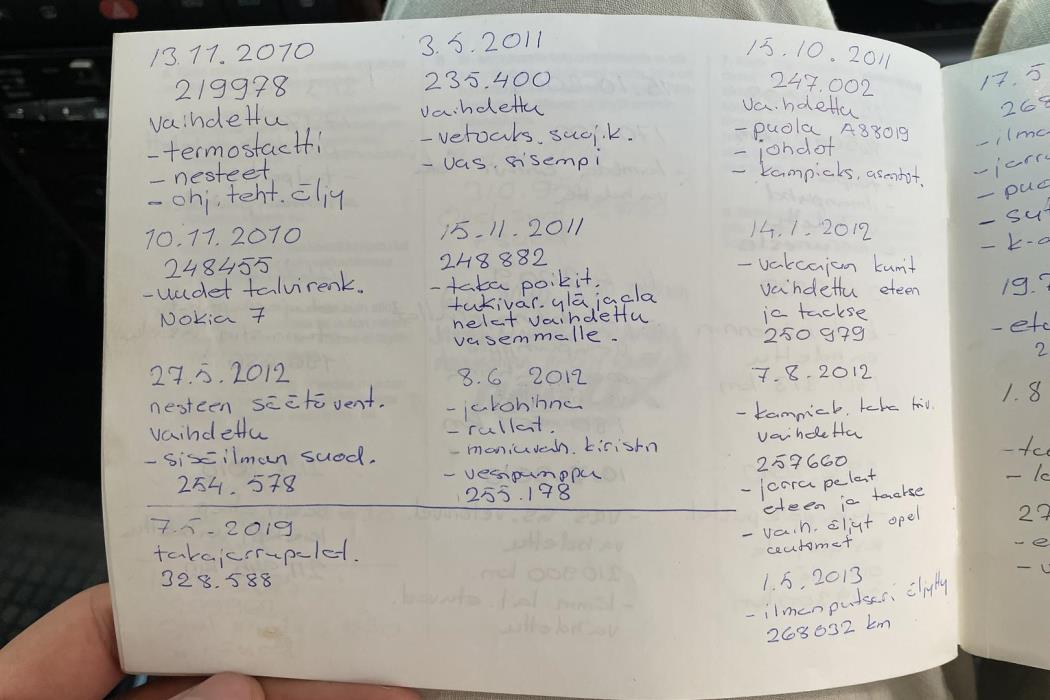 13.11.2010
219978
vaihdettu
-termostaatti
- nesteet
- ohj. teht. öljy
10.11.2010
248455
-uudet talvirenk.
Nokia 7
27.5.2012
nesteen säätö vent.
vaihdettu
-sisäilman suod.
254.578
7.5.2019
takajarrupalat.
328.588
3.5.2011
235.400
vaihdettu
-vetoaks. suoj.k.
- vas. sisempi
15.11.2011
248882
-taka poikit.
tukivar. ylä ja ala
nelat vaihdettu
vasemmalle.
8.6.2012
-jakohihna
-rullat.
- moniurah. kiristin
- vesipumppu
255.178
15.10.2011
247.002
vaihdettu
- puola A88019
- johdot
- kampiaks. asentot.
14.1.2012
- vakaajan kumit
vaihdettu eteen
ja taakse
250 979
7.8.2012
- kampiak. taka tiv.
vaihdettu
257660
- jarru palat
eteen ja taakse
- vaih. öljyt opel
automat
1.5.2013
- ilmanputsari öljytty
268032 km
17.5
268
-ilma
-jarru
- puo
- su
- k-a
19.7
- eta
2
1.8
-ta
- la
27
- e
- v